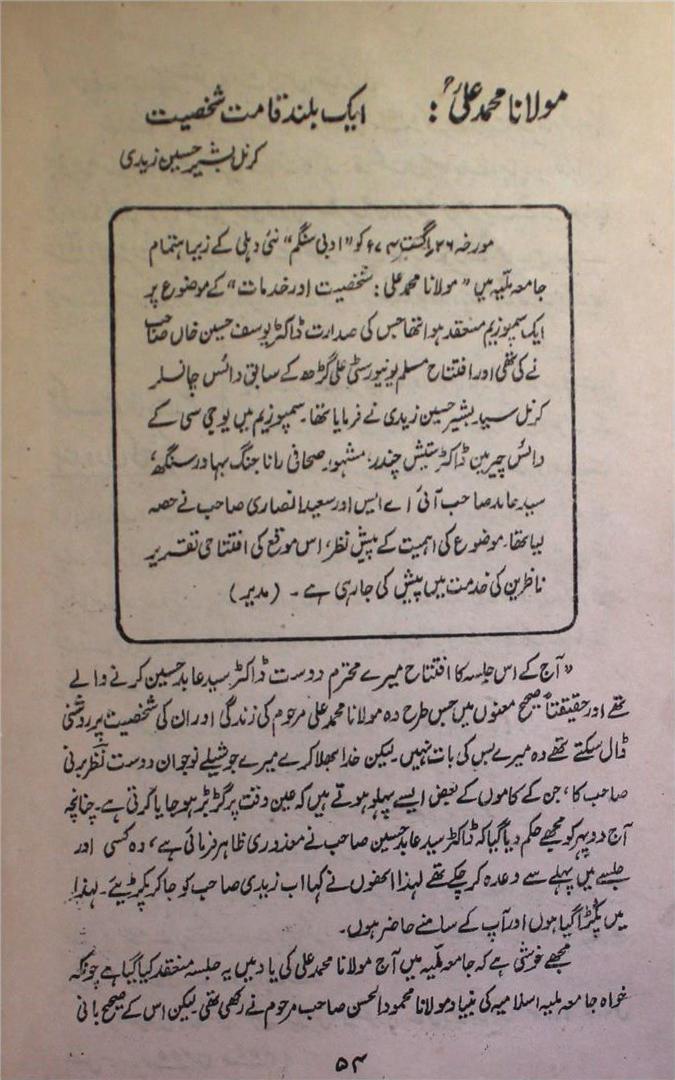 مولانا محمد علیؒ : ایک بلند قامت شخصیت
کرنل بشیر حسین زیدی
مورخہ ۲۶ اگست ۷۴ء کو "ادبی سنگم" نئی دہلی کے زیر اہتمام
جامعہ ملیہ میں "مولانا محمد علی : شخصیت اور خدمات" کے موضوع پر
ایک سمپوزیم منعقد ہوا تھا جس کی صدارت ڈاکٹر یوسف حسین خاں صاحب
نے کی تھی اور افتتاح مسلم یونیورسٹی علی گڑھ کے سابق وائس چانسلر
کرنل سید بشیر حسین زیدی نے فرمایا تھا۔ سمپوزیم میں یو جی سی کے
وائس چیرمین ڈاکٹر ستیش چندر، مشہور صحافی رانا جنگ بہادر سنگھ،
سید حامد صاحب آئی اے ایس اور سعید انصاری صاحب نے حصہ
لیا تھا۔ موضوع کی اہمیت کے پیش نظر، اس موقع کی افتتاحی تقریر
ناظرین کی خدمت میں پیش کی جارہی ہے۔ (مدیر)
"آج کے اس جلسہ کا افتتاح میرے محترم دوست ڈاکٹر سید عابد حسین کرنے والے
تھے اور حقیقتاً صحیح معنوں میں جس طرح وہ مولانا محمد علی مرحوم کی زندگی اور ان کی شخصیت پر روشنی
ڈال سکتے تھے وہ میرے بس کی بات نہیں۔ لیکن خدا بھلا کرے میرے جوشیلے نوجوان دوست نظر برنی
صاحب کا، جن کے کاموں کے بعض ایسے پہلو ہوتے ہیں کہ عین وقت پر گڑبڑ ہو جایا کرتی ہے۔ چنانچہ
آج دوپہر کو مجھے حکم دیا گیا کہ ڈاکٹر سید عابد حسین صاحب نے معذوری ظاہر فرمائی ہے، وہ کسی اور
جلسے میں پہلے سے وعدہ کر چکے تھے لہذا انھوں نے کہا اب زیدی صاحب کو جا کر پکڑیئے۔ لہذا
میں پکڑا گیا ہوں اور آپ کے سامنے حاضر ہوں۔
مجھے خوشی ہے کہ جامعہ ملیہ میں آج مولانا محمد علی کی یاد میں یہ جلسہ منعقد کیا گیا ہے چونکہ
خواہ جامعہ ملیہ اسلامیہ کی بنیاد مولانا محمود الحسن صاحب مرحوم نے رکھی تھی لیکن اس کے صحیح بانی
۵۴